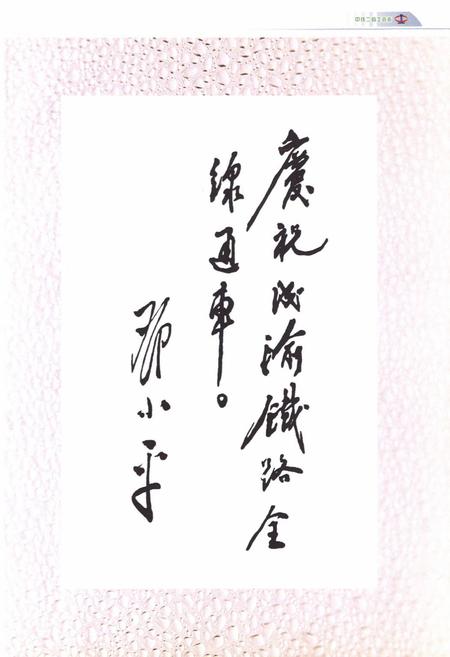 中铁二局工合会
慶祝成渝鐵路全
線通車。
邓小平